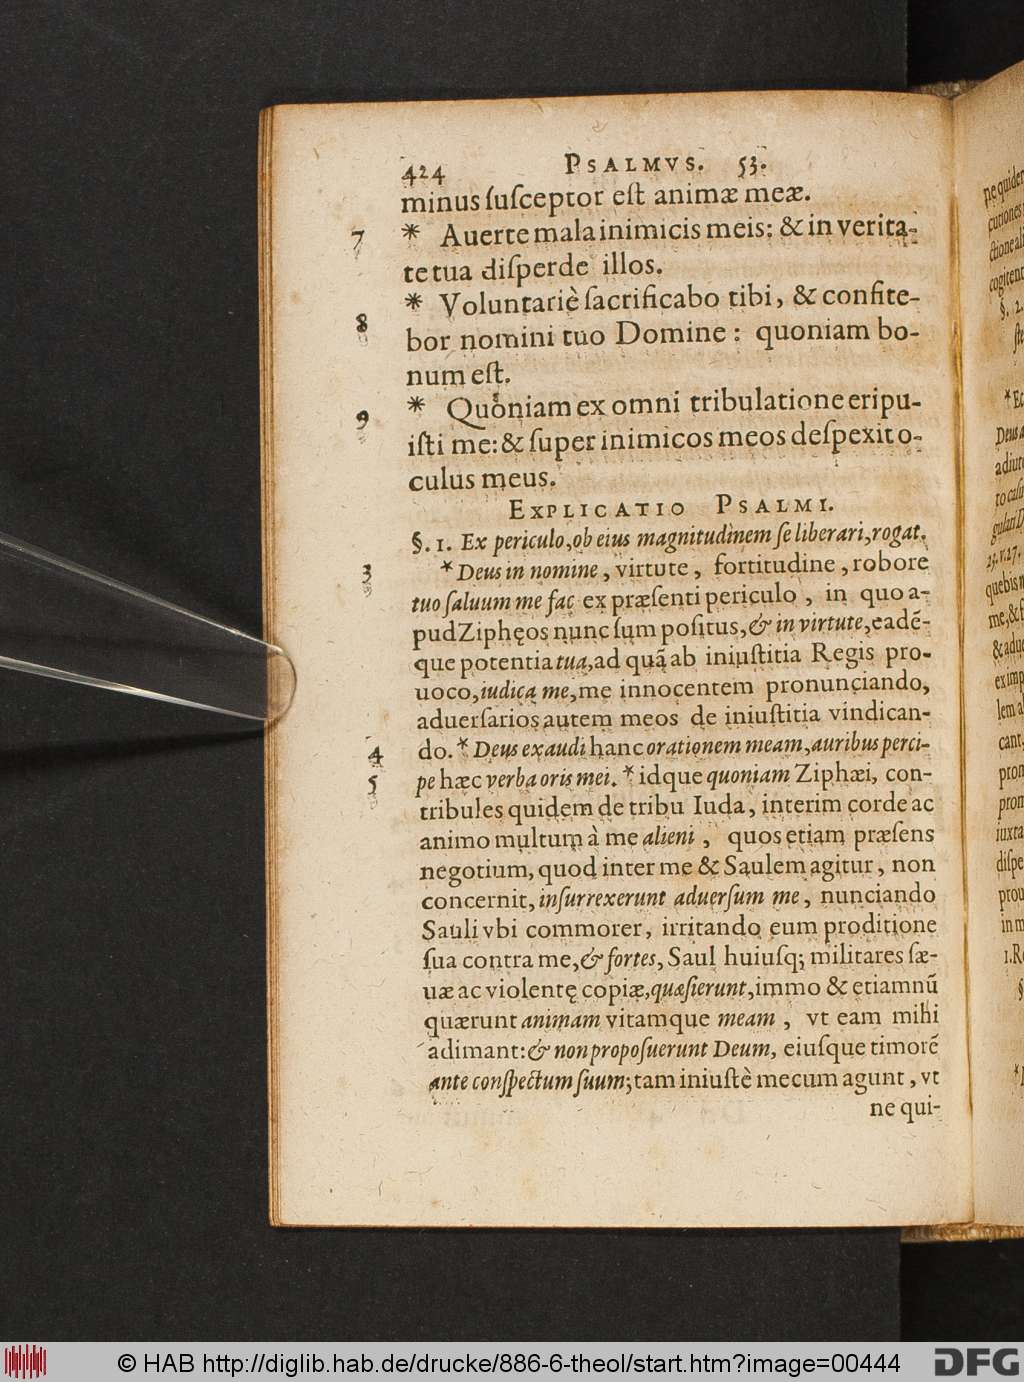 424 PSALMVS. 53.
minus ſuſceptor eſt animæ meæ.
7 * Auerte mala inimicis meis: & in verita-
te tua diſperde illos.
8 * Voluntariè ſacrificabo tibi, & confite-
bor nomini tuo Domine: quoniam bo-
num eſt.
9 * Quoniam ex omni tribulatione eripu-
iſti me: & ſuper inimicos meos deſpexit o-
culus meus.
EXPLICATIO PSALMI.
§. 1. Ex periculo, ob eius magnitudinem ſe liberari, rogat.
3 * Deus in nomine, virtute, fortitudine, robore
tuo ſaluum me fac ex præſenti periculo, in quo a-
pud Ziphęos nunc ſum poſitus, & in virtute, eadē-
que potentia tua, ad quã ab iniuſtitia Regis pro-
uoco, iudica me, me innocentem pronunciando,
aduerſarios autem meos de iniuſtitia vindican-
4 do. * Deus exaudi hanc orationem meam, auribus perci-
5 pe hæc verba oris mei. * idque quoniam Ziphæi, con-
tribules quidem de tribu Iuda, interim corde ac
animo multum à me alieni, quos etiam præſens
negotium, quod inter me & Saulem agitur, non
concernit, inſurrexerunt aduerſum me, nunciando
Sauli vbi commorer, irritando eum proditione
ſua contra me, & fortes, Saul huiuſq; militares ſæ-
uæ ac violentę copiæ, quæſierunt, immo & etiamnũ
quærunt animam vitamque meam, vt eam mihi
adimant: & non propoſuerunt Deum, eiuſque timorē
ante conſpectum ſuum; tam iniuſtè mecum agunt, vt
ne qui-
© HAB http://diglib.hab.de/drucke/886-6-theol/start.htm?image=00444
DFG